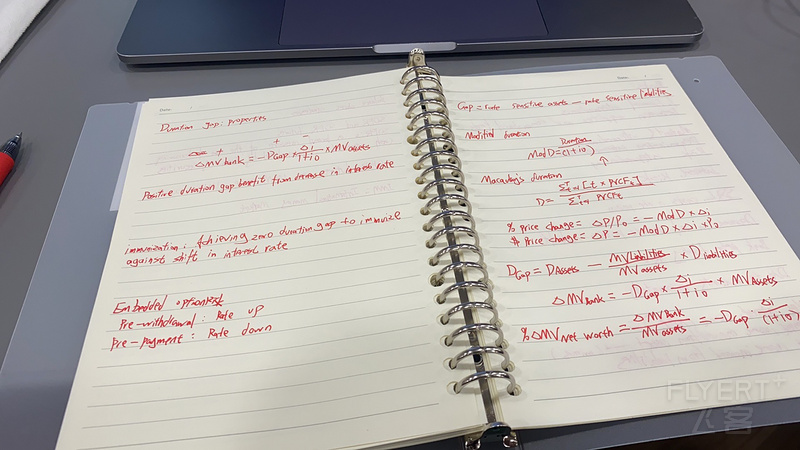 Date:
Duration gap: properties
+ + −
ΔMVBank = −DGap × Δi/1+i0 × MVAssets
Positive duration gap benefit from decrease in interest rate
immunization: Achieving zero duration gap to immunize
against shift in interest rate
Embedded options
Pre-withdrawal: Rate up
Pre-payment: Rate down
Date:
Gap = rate sensitive assets — rate sensitive liabilities
Modified duration
ModD = Duration/(1+i0)
↑
Macaulay's duration
D = Σᵀt=1 [t × PVCFt] / Σᵀt=1 PVCFt
% Price change = ΔP/P0 = −ModD × Δi
$ Price change = ΔP = −ModD × Δi × P0
DGap = DAssets − MVLiabilities/MVassets × DLiabilities
ΔMVBank = −DGap × Δi/1+i0 × MVAssets
%ΔMVNet worth = ΔMVBank/MVassets = −DGap · Δi/(1+i0)
FLYERT+
人客